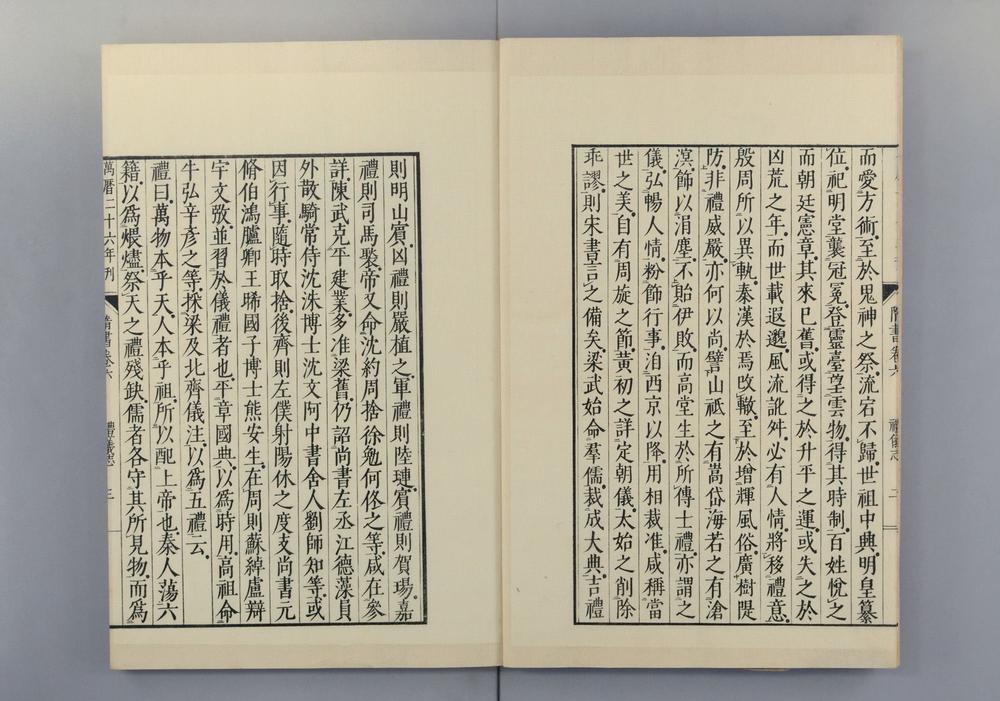 而愛方術。至於鬼神之祭。流宕不歸。世祖中興。明皇纂
位。祀明堂。襲冠冕。登靈臺。望雲物。得其時制。百姓悅之
而朝廷憲章。其來已舊。或得之於升平之運。或失之於
凶荒之年。而世載遐邈。風流訛舛。必有人情。將移禮意。
殷周所以異軌。秦漢於焉改轍。至於增輝風俗。廣樹隄
防。非禮威嚴。亦何以尚。譬山祗之有嵩岱。海若之有滄
溟。飾以涓塵。不貽伊敗。而高堂生於所傳士禮。亦謂之
儀。弘暢人情。粉飾行事。洎西京以降。用相裁准。咸稱當
世之美。自有周旋之節。黃初之詳定朝儀。太始之削除
乖謬。則宋書言之備矣。梁武始命羣儒。裁成大典。吉禮
隋書卷六
禮儀志
二
則明山賓。凶禮則嚴植之。軍禮則陸璉。賓禮則賀瑒。嘉
禮則司馬褧。帝又命沈約周捨徐勉何佟之等。咸在參
詳。陳武克平建業。多准梁舊。仍詔尚書左丞江德藻員
外散騎常侍沈洙博士沈文阿中書舍人劉師知等。或
因行事。隨時取捨。後齊則左僕射陽休之度支尚書元
脩伯鴻臚卿王晞國子博士熊安生。在周則蘇綽盧辯
宇文敪。並習於儀禮者也。平章國典。以爲時用。高祖命
牛弘辛彥之等。採梁及北齊儀注。以爲五禮云。
禮曰。萬物本乎天。人本乎祖。所以配上帝也。秦人蕩六
籍。以爲煨燼。祭天之禮殘缺。儒者各守其所見物。而爲
萬曆二十六年刊
隋書卷六
禮儀志
三